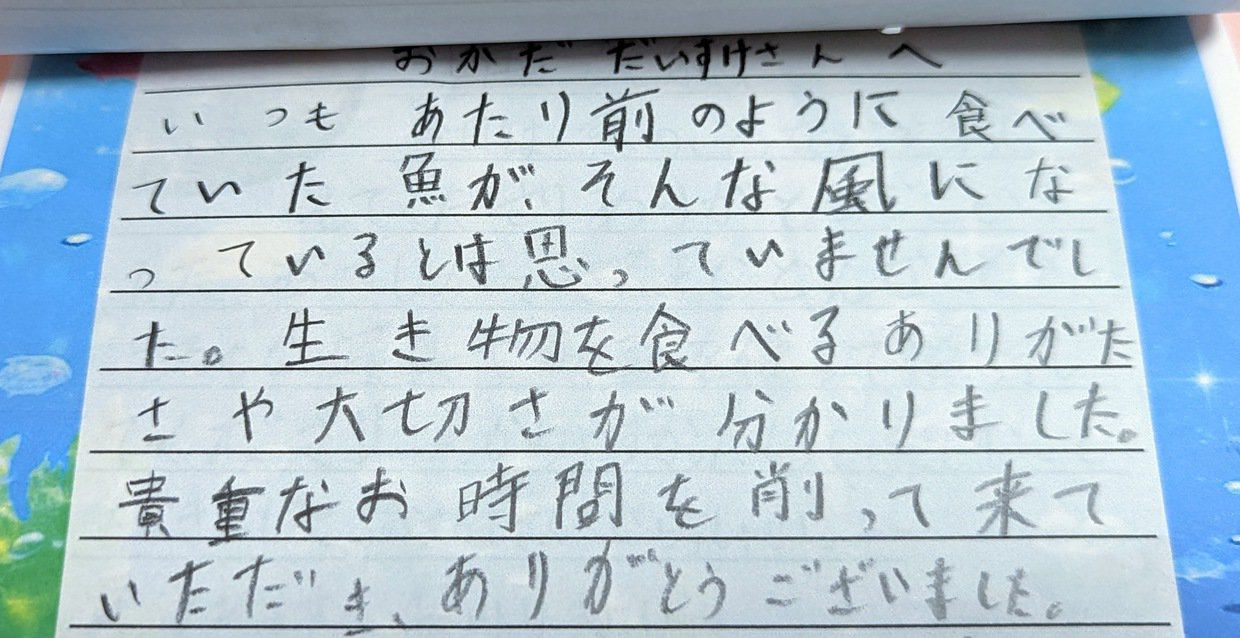 おかだ だいすけさんへ
いつも あたり前のように食べ
ていた魚が、そんな風にな
っているとは思っていませんでし
た。生き物を食べるありがた
さや大切さが分かりました。
貴重なお時間を削って来て
いただき、ありがとうございました。